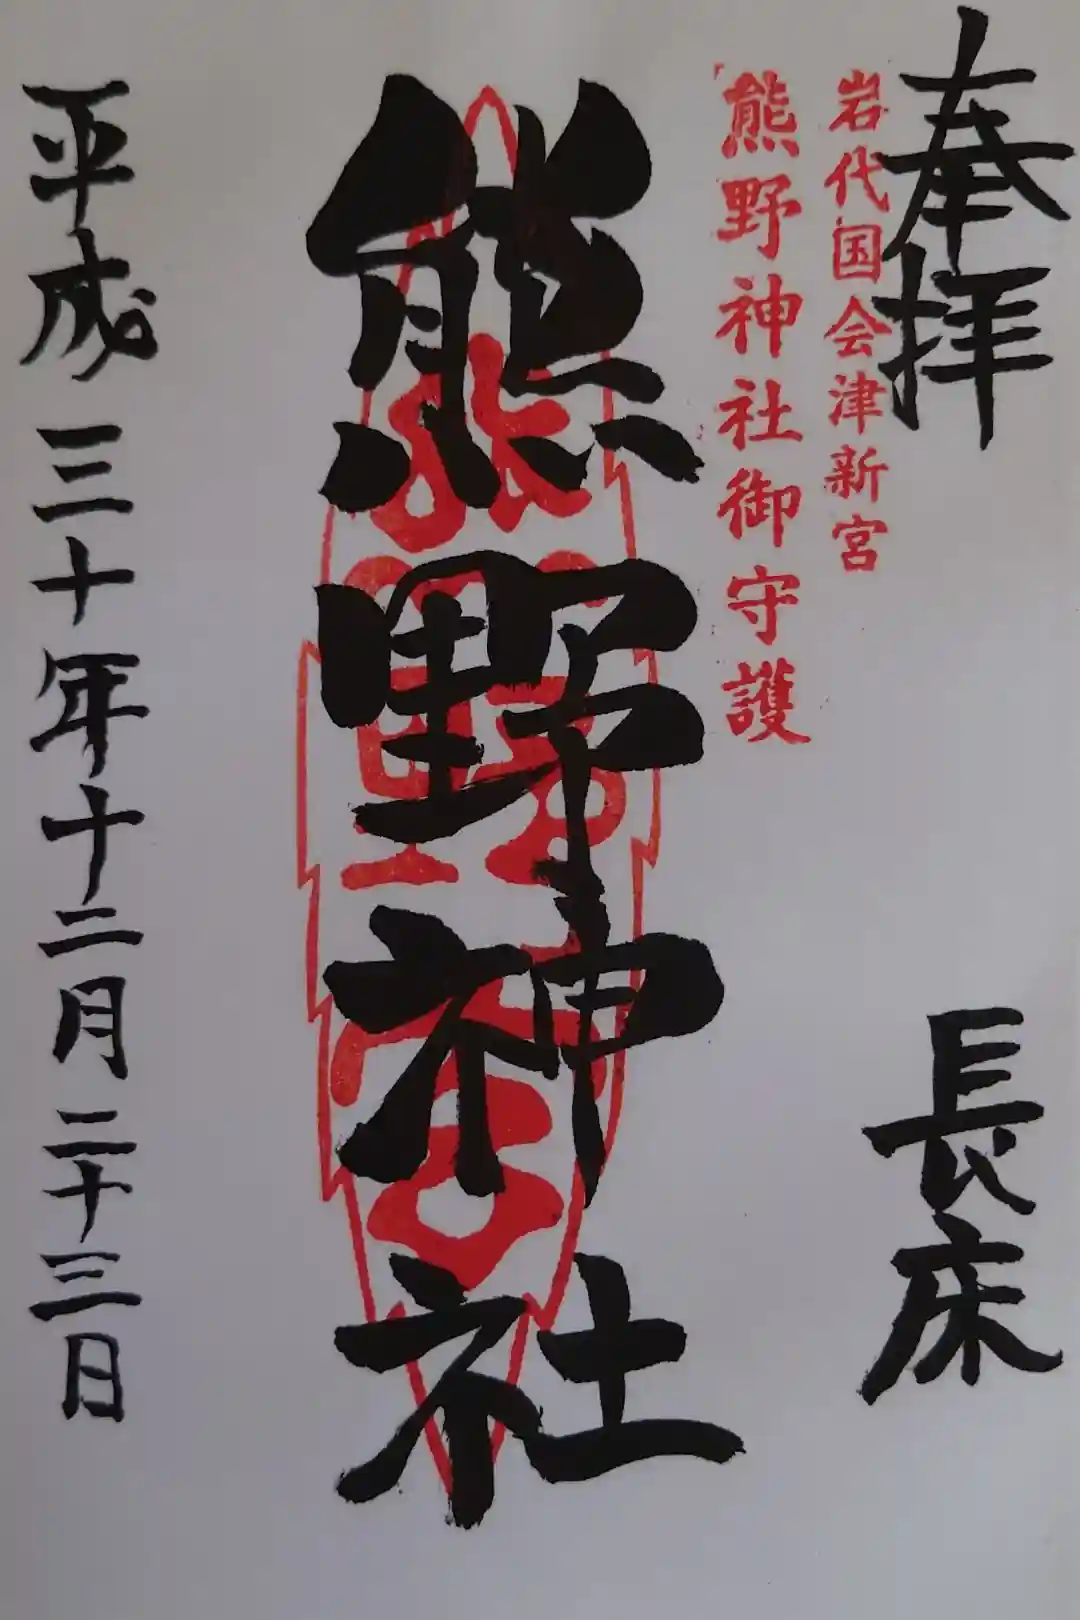 奉拝
長床
岩代国会津新宮
熊野神社御守護
熊野神社
平成三十年十二月二十三日